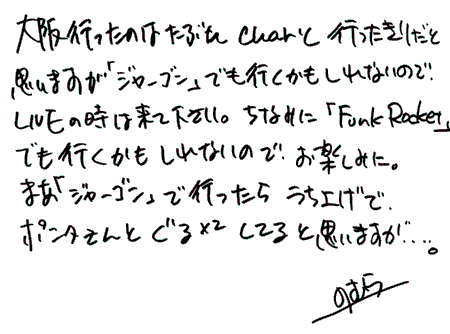 大阪行ったのはたぶん charと 行ったきりだと
思いますが「ジャーゴン」でも行くかもしれないので!
LIVEの時は来て下さい。ちなみに「Funk Rocket」
でも行くかもしれないので!お楽しみに。
まあ「ジャーゴン」で行ったら うち上げで
ポンタさんと ぐる×2 してると思いますが‥‥。
のむら